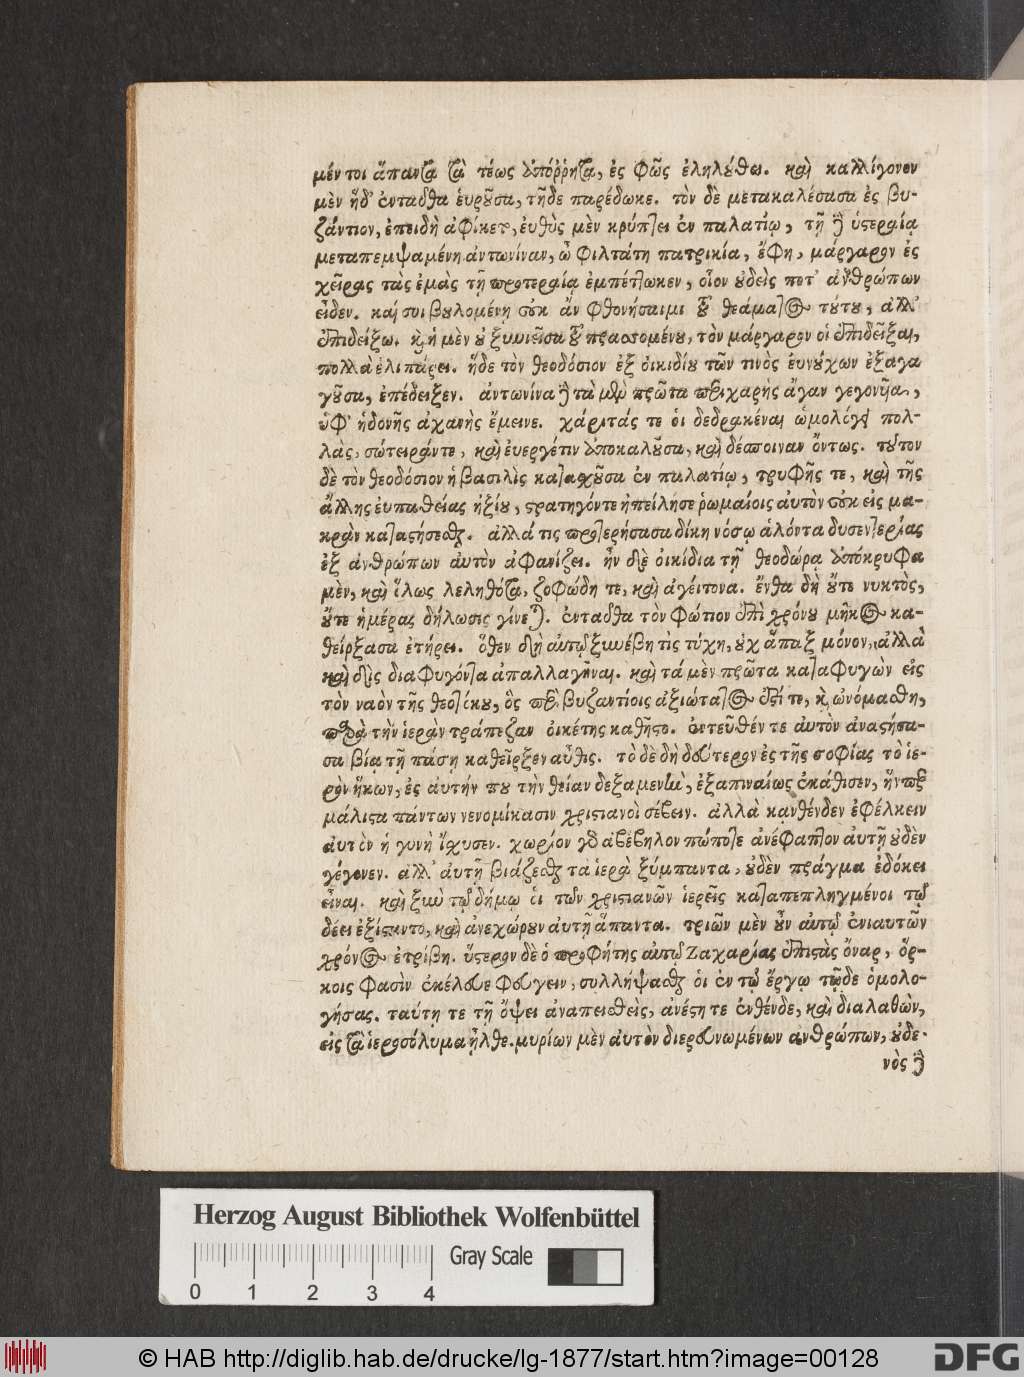 μέν τοι ἅπαντα τὰ τέως ἀπόῤῥητα, ἐς φῶς ἐληλύθει. καὶ καλλίγονον
μὲν ἥδ' ἐνταῦθα εὑροῦσα, τῇδε παρέδωκε. τὸν δὲ μετακαλέσασα ἐς βυ-
ζάντιον, ἐπειδὴ ἀφίκετο, εὐθὺς μὲν κρύπτει ἐν παλατίῳ, τῇ δὲ ὑστεραίᾳ
μεταπεμψαμένη ἀντωνίναν, ὦ φιλτάτη πατρικία, ἔφη, μάργαρον ἐς
χεῖρας τὰς ἐμὰς τῇ προτεραίᾳ ἐμπέπτωκεν, οἷον οὐδεὶς ποτ' ἀνθρώπων
εἶδεν. καί σοι βουλομένη οὐκ ἂν φθονήσαιμι τοῦ θεάματος τούτου, ἀλλ'
ἐπιδείξω. καὶ ἡ μὲν οὐ ξυνιεῖσα τοῦ πρασσομένου, τὸν μάργαρον οἱ ἐπιδεῖξαι,
πολλὰ ἐλιπάρει. ἥδε τὸν θεοδόσιον ἐξ οἰκιδίου τῶν τινὸς εὐνούχων ἐξαγα
γοῦσα, ἐπέδειξεν. ἀντωνίνα δὲ τὰ μὲν πρῶτα περιχαρὴς ἄγαν γεγονυῖα,
ὑφ' ἡδονῆς ἀχανὴς ἔμεινε. χάριτάς τε οἱ δεδρακέναι ὡμολόγει πολ-
λὰς, σώτειράν τε, καὶ εὐεργέτιν ἀποκαλοῦσα, καὶ δέσποιναν ὄντως. τοῦτον
δὲ τὸν θεοδόσιον ἡ βασιλὶς κατασχοῦσα ἐν παλατίῳ, τρυφῆς τε, καὶ τῆς
ἄλλης εὐπαθείας ἠξίου, στρατηγόν τε ἠπείλησε ῥωμαίοις αὐτὸν οὐκ εἰς μα-
κρὰν καταστήσεσθαι. ἀλλά τις προτερήσασα δίκη νόσῳ ἁλόντα δυσεντερίας
ἐξ ἀνθρώπων αὐτὸν ἀφανίζει. ἦν δὲ οἰκίδια τῇ θεοδώρᾳ ἀπόκρυφα
μὲν, καὶ ὅλως λεληθότα, ζοφώδη τε, καὶ ἀγείτονα. ἔνθα δὴ οὔτε νυκτὸς,
οὔτε ἡμέρας δήλωσις γίνεται. ἐνταῦθα τὸν φώτιον ἐπὶ χρόνου μῆκος κα-
θείρξασα ἐτήρει. ὅθεν δὴ αὐτῷ ξυνέβη τὶς τύχη, οὐχ ἅπαξ μόνον, ἀλλὰ
καὶ δὶς διαφυγόντα ἀπαλλαγῆναι. καὶ τά μὲν πρῶτα καταφυγὼν εἰς
τὸν ναὸν τῆς θεοτόκου, ὃς παρὰ βυζαντίοις ἁγιώτατος ἐστί τε, καὶ ὠνόμασθη,
παρὰ τὴν ἱερὰν τράπεζαν οἰκέτης καθῆστο. ἐντεῦθέν τε αὐτὸν ἀναστήσα-
σα βίᾳ τῇ πάσῃ καθεῖρξεν αὖθις. τὸ δὲ δὴ δεύτερον ἐς τῆς σοφίας τὸ ἱε-
ρὸν ἥκων, ἐς αὐτήν που τὴν θείαν δεξαμενὴν, ἐξαπιναίως ἐκάθισεν, ἥνπερ
μάλιστα πάντων νενομίκασιν χριστιανοὶ σέβειν. ἀλλὰ κᾀνθένδεν ἐφέλκειν
αὐτὸν ἡ γυνὴ ἴσχυσεν. χωρίον γὰρ ἀβέβηλον πώποτε ἀνέφαπτον αὐτῇ οὐδὲν
γέγονεν. ἀλλ' αὐτῇ βιάζεσθαι τὰ ἱερὰ ξύμπαντα, οὐδὲν πρᾶγμα ἐδόκει
εἶναι. καὶ ξὺν τῷ δήμῳ οἱ τῶν χριστιανῶν ἱερεῖς καταπεπληγμένοι τῷ
δέει ἐξίσταντο, καὶ ἀνεχώρουν αὐτῇ ἅπαντα. τριῶν μὲν οὖν αὐτῷ ἐνιαυτῶν
χρόνος ἐτρίβη. ὕστερον δὲ ὁ προφήτης αὐτῷ Ζαχαρίας ἐπιστὰς ὄναρ, ὅρ-
κοις φασὶν ἐκέλευε φεύγειν, συλλήψεσθαι οἱ ἐν τῷ ἔργῳ τῷδε ὁμολο-
γήσας. ταύτῃ τε τῇ ὄψει ἀναπεισθεὶς, ἀνέστη τε ἐνθένδε, καὶ διαλαθὼν,
εἰς τὰ ἱεροσόλυμα ἦλθε. μυρίων μὲν αὐτὸν διερευνωμένων ἀνθρώπων, οὐδε-
νὸς δὲ
Herzog August Bibliothek Wolfenbüttel
Gray Scale
0 1 2 3 4
© HAB http://diglib.hab.de/drucke/lg-1877/start.htm?image=00128
DFG